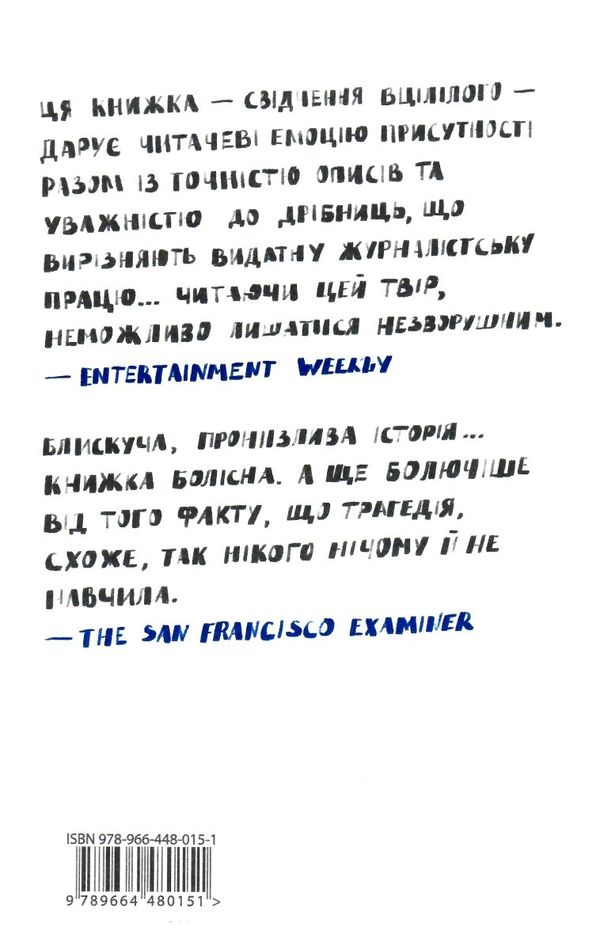 ЦЯ КНИЖКА — СВІДЧЕННЯ ВЦІЛІЛОГО —
ДАРУЄ ЧИТАЧЕВІ ЕМОЦІЮ ПРИСУТНОСТІ
РАЗОМ ІЗ ТОЧНІСТЮ ОПИСІВ ТА
УВАЖНІСТЮ ДО ДРІБНИЦЬ, ЩО
ВИРІЗНЯЮТЬ ВИДАТНУ ЖУРНАЛІСТСЬКУ
ПРАЦЮ... ЧИТАЮЧИ ЦЕЙ ТВІР,
НЕМОЖЛИВО ЛИШАТИСЯ НЕЗВОРУШНИМ.
— ENTERTAINMENT WEEKLY
БЛИСКУЧА, ПРОНИЗЛИВА ІСТОРІЯ...
КНИЖКА БОЛІСНА. А ЩЕ БОЛЮЧІШЕ
ВІД ТОГО ФАКТУ, ЩО ТРАГЕДІЯ,
СХОЖЕ, ТАК НІКОГО НІЧОМУ Й НЕ
НАВЧИЛА.
— THE SAN FRANCISCO EXAMINER
ISBN 978-966-448-015-1
9 789664 480151 >